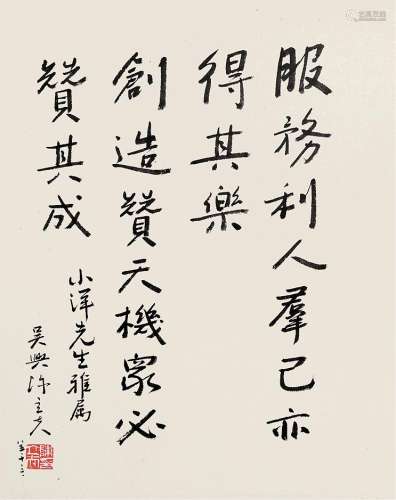 服務利人羣己亦
得其樂
創造贊天機眾必
贊其成
小洋先生雅屬
吳興陳立夫